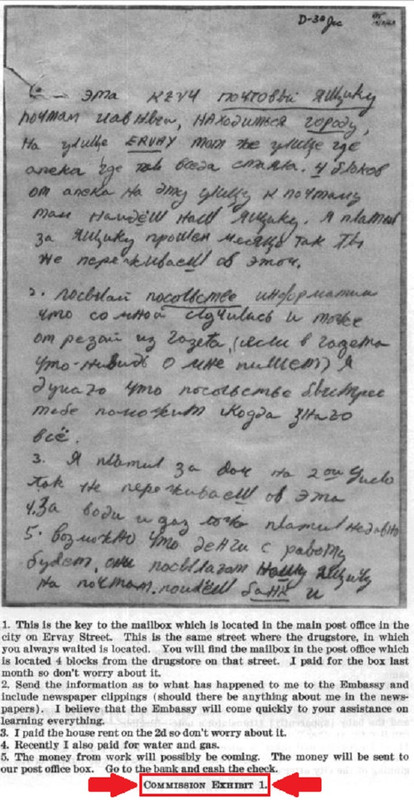 D-30 Jec
1. эта ключ почтовый ящику
на улице ERVAY та же улице где
от апека на эту улицу к почтаму
там найдёш наш ящику. я платил
за ящику прошлом месяце так ты
не переживаеш об этом.
2. посылай посольстве информатии
что со мной случились и тоже
от резай из газета, (если в газета
что-нибудь о мне пишет) я
думаю что посольстве быстрее
тебе поможит когда знаю
всё.
3. я платил за дом на 2ои число
так не переживаеш об эта
4. За води и газ тоже платил недавно
5. возможно что денги с работу
будет, они посылают нашу ящику
на почтам. поидёш банк и
1. This is the key to the mailbox which is located in the main post office in the
city on Ervay Street. This is the same street where the drugstore, in which
you always waited is located. You will find the mailbox in the post office which
is located 4 blocks from the drugstore on that street. I paid for the box last
month so don't worry about it.
2. Send the information as to what has happened to me to the Embassy and
include newspaper clippings (should there be anything about me in the news-
papers). I believe that the Embassy will come quickly to your assistance on
learning everything.
3. I paid the house rent on the 2d so don't worry about it.
4. Recently I also paid for water and gas.
5. The money from work will possibly be coming. The money will be sent to
our post office box. Go to the bank and cash the check.
COMMISSION EXHIBIT 1.